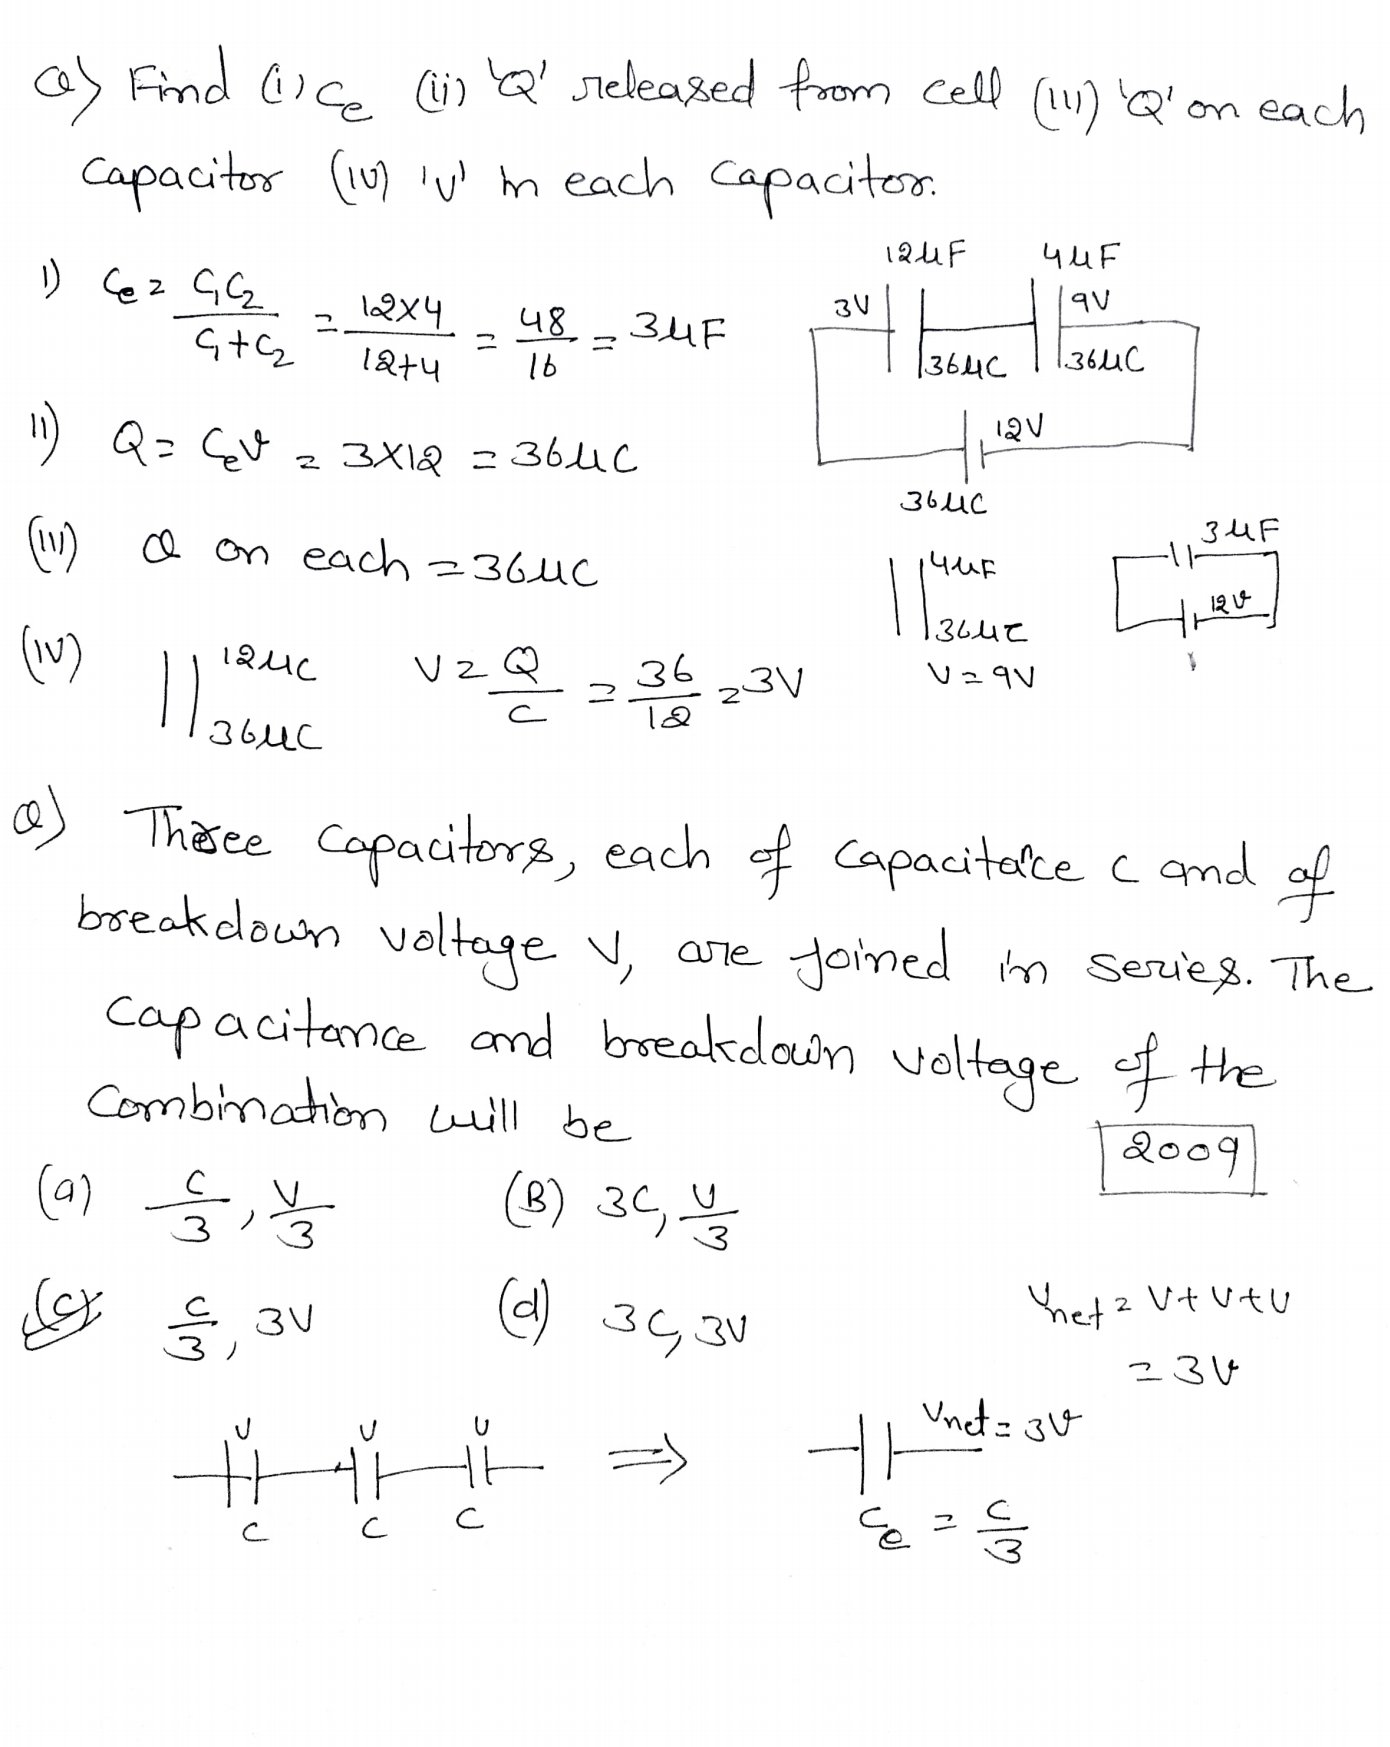 Q) Find (i) Ce (ii) 'Q' released from cell (iii) 'Q' on each
capacitor (iv) 'V' in each capacitor.
12μF 4μF
3V 9V
36μC 36μC
12V
36μC
i) Ce = C1C2/C1+C2 = 12×4/12+4 = 48/16 = 3μF
ii) Q = CeV = 3×12 = 36μC
(iii) Q on each = 36μC
4μF
36μC
V = 9V
3μF
12V
(iv) 12μC
36μC
V = Q/C = 36/12 = 3V
Q) Three capacitors, each of capacitance C and of
breakdown voltage V, are joined in series. The
capacitance and breakdown voltage of the
combination will be
2009
(a) C/3, V/3 (B) 3C, V/3
(c) C/3, 3V (d) 3C, 3V
Vnet = V+V+V
= 3V
V V V
C C C
⇒
Vnet = 3V
Ce = C/3